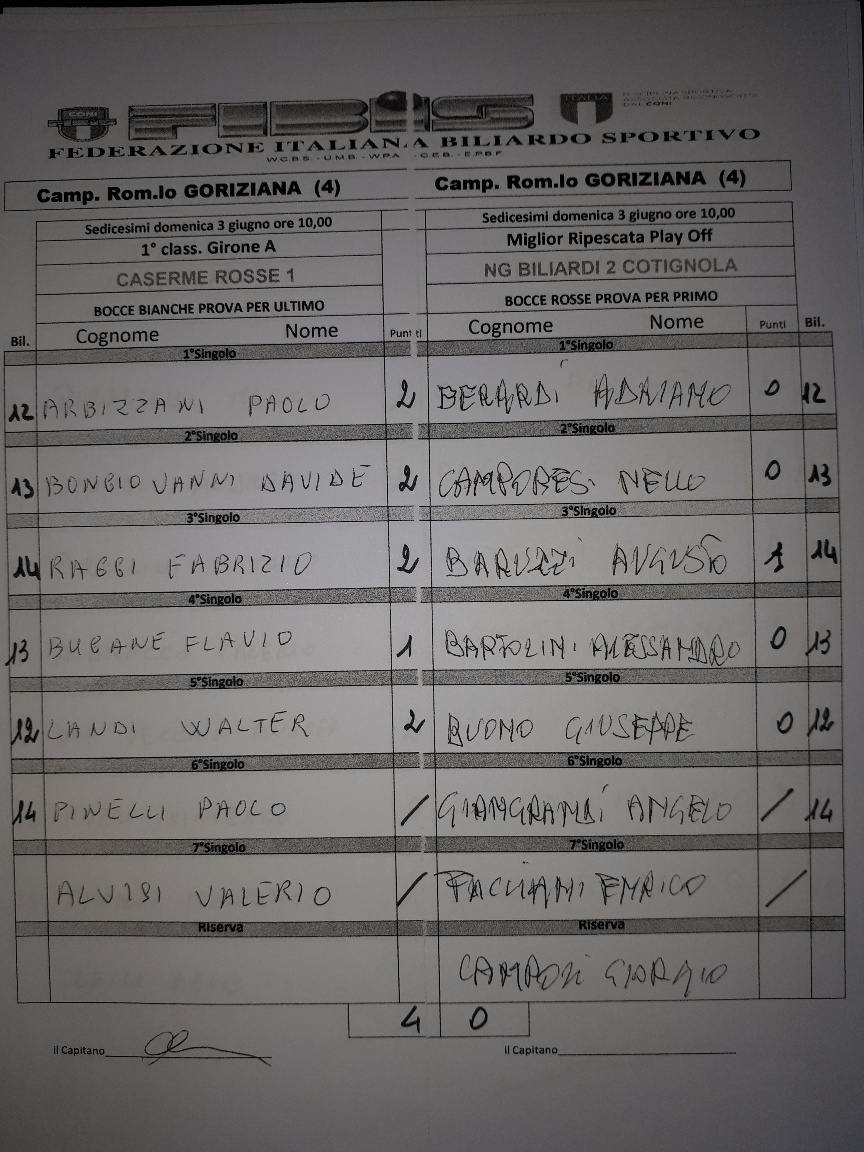 CONI FIBiS ITALIA
DISCIPLINA SPORTIVA
ASSOCIATA RICONOSCIUTA
DAL CONI
FEDERAZIONE ITALIANA BILIARDO SPORTIVO
W.C.B.S. - U.M.B. - WPA - C.E.B. - E.P.B.F
Camp. Rom.lo GORIZIANA (4) Camp. Rom.lo GORIZIANA (4)
Sedicesimi domenica 3 giugno ore 10,00 Sedicesimi domenica 3 giugno ore 10,00
1° class. Girone A Miglior Ripescata Play Off
CASERME ROSSE 1 NG BILIARDI 2 COTIGNOLA
BOCCE BIANCHE PROVA PER ULTIMO BOCCE ROSSE PROVA PER PRIMO
Bil. Cognome Nome Punti Cognome Nome Punti Bil.
1°Singolo 1°Singolo
12 ARBIZZANI PAOLO 2 BERARDI ADRIANO 0 12
2°Singolo 2°Singolo
13 BONGIOVANNI DAVIDE 2 CAMPORESI NELLO 0 13
3°Singolo 3°Singolo
14 RAGGI FABRIZIO 2 BARUZZI AUGUSTO 1 14
4°Singolo 4°Singolo
13 BUGANE FLAVIO 1 BARTOLINI ALESSANDRO 0 13
5°Singolo 5°Singolo
12 LANDI WALTER 2 BUONO GIUSEPPE 0 12
6°Singolo 6°Singolo
14 PINELLI PAOLO / GIANGRANDI ANGELO / 14
7°Singolo 7°Singolo
ALVISI VALERIO / PAGLIANI ENRICO /
Riserva Riserva
GIORGIO
4 0
il Capitano il Capitano